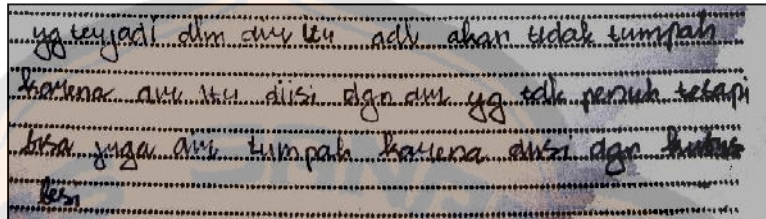 yg terjadi dlm air itu adl akan tidak tumpah
karena air itu diisi dgn air yg tdk penuh tetapi
bisa juga air tumpah karena diisi dgn kubus
besi